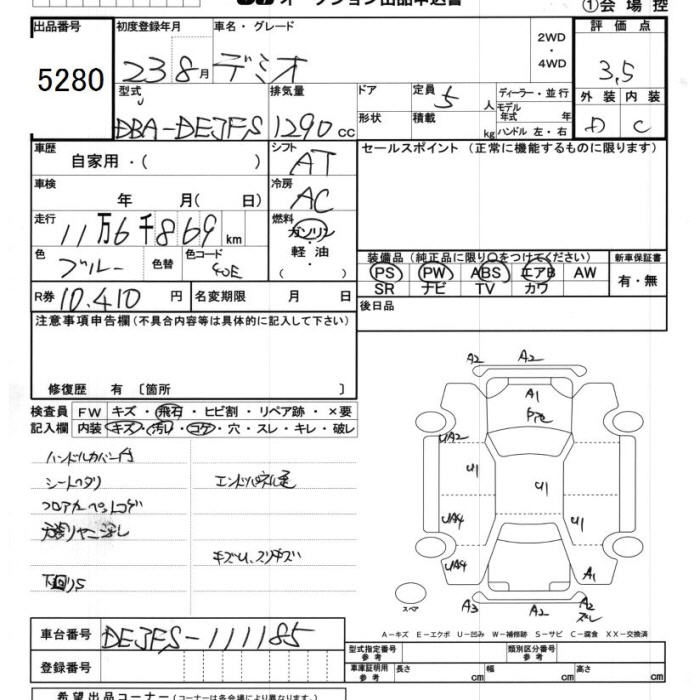 オークション出品申込書
①会場控
出品番号 初度登録年月 車名・グレード 2WD ・ 4WD 評価点
5280 23 8月 デミオ 3.5
型式 排気量 ドア 定員 5人 ディーラー・並行 外装 内装
DBA-DE3FS 1290cc 形状 積載 kg モデル年式 年 ハンドル 左・右 D C
車歴 自家用・( ) シフト AT セールスポイント(正常に機能するものに限ります)
車検 年 月(日) 冷房 AC
走行 11万6千869km 燃料 ガソリン・軽油・( )
色 ブルー 色替 色コード 装備品(純正品に限り〇をつけてください) 新車保証書
PS PW ABS エアB AW 有・無
SR ナビ TV カワ
R券 10,410円 名変期限 月 日 後日品
注意事項申告欄(不具合内容等は具体的に記入して下さい)
修復歴 有 〔箇所 〕
検査員 FW キズ・飛石・ヒビ割・リペア跡・×要
記入欄 内装 キズ・汚れ・コゲ・穴・スレ・キレ・破レ
ハンドルカバー付
シートヘタリ
フロアカーペットコゲ
エンドパネル
キズU、スリキズ
下回りS
A2 A2
A1
UA2
U1 U1
UA4 U1
UA4 A1
A3 A2 A2
スペア
A－キズ E－エクボ U－凹み W－補修跡 S－サビ C－腐食 XX－交換済
車台番号 DE3FS-111185
登録番号
型式指定番号 参考 類別区分番号 参考
車庫証明用 参考 長さ cm 幅 cm 高さ cm
希望出品コーナー(コーナーは各会場により異なります)